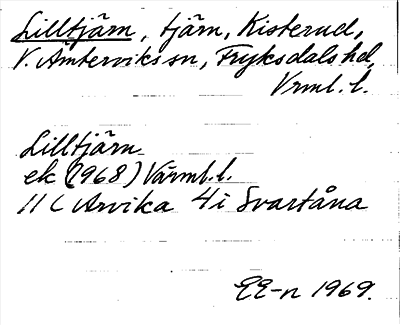 Lilltjärn, tjärn, Kisterud,
V. Ämterviks sn, Fryksdals hd,
Vrml. l.
Lilltjärn
ek (1968) Värml. l.
11 C Arvika 4 i Svartåna
EE-n 1969.